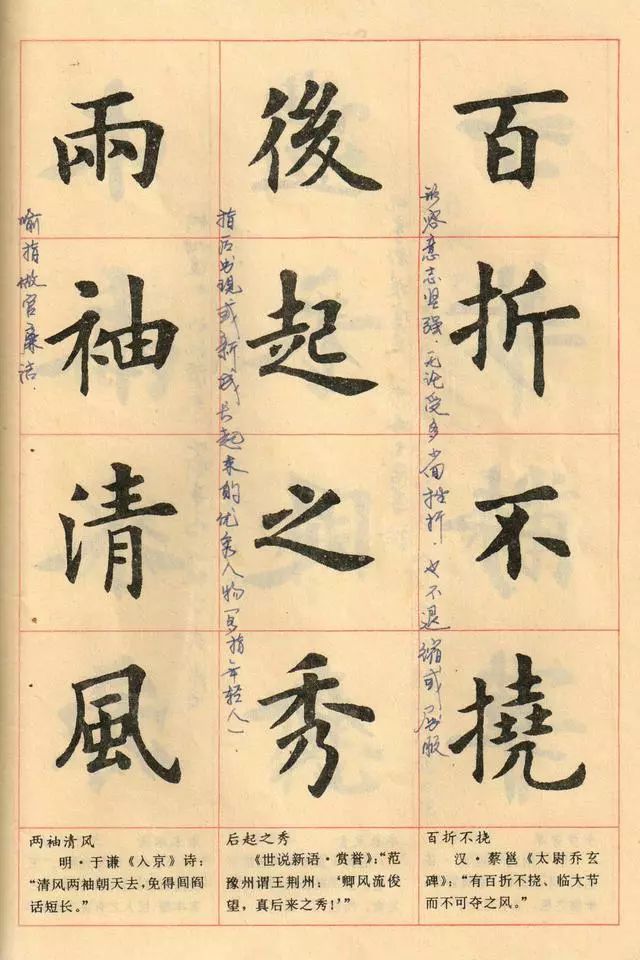 百折不撓
形容意志坚强.无论受多少回挫折.也不退缩或屈服
後起之秀
指后出现或新成长起来的优秀人物(多指年轻人)
兩袖清風
喻指做官廉洁.
百折不挠
汉·蔡邕《太尉乔玄
碑》:“有百折不挠、临大节
而不可夺之风。”
后起之秀
《世说新语·赏誉》:“范
豫州谓王荆州:‘卿风流俊
望,真后来之秀!’”
两袖清风
明·于谦《入京》诗:
“清风两袖朝天去,免得闾阎
话短长。”